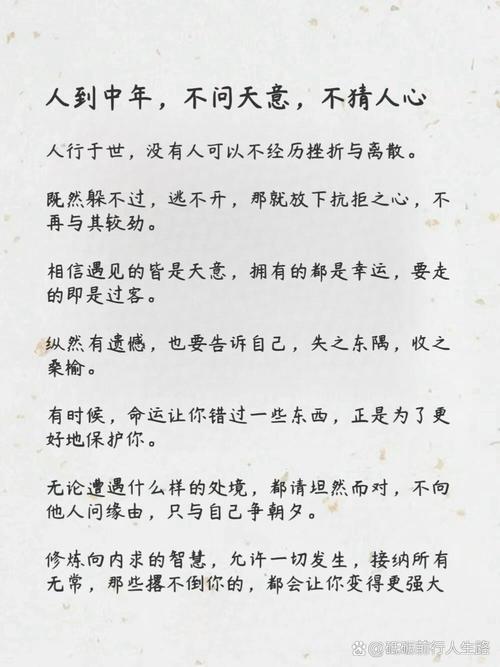 人到中年，不问天意，不猜人心
人行于世，没有人可以不经历挫折与离散。
既然躲不过，逃不开，那就放下抗拒之心，不
再与其较劲。
相信遇见的皆是天意，拥有的都是幸运，要走
的即是过客。
纵然有遗憾，也要告诉自己，失之东隅，收之
桑榆。
有时候，命运让你错过一些东西，正是为了更
好地保护你。
无论遭遇什么样的处境，都请坦然而对，不向
他人问缘由，只与自己争朝夕。
修炼向内求的智慧，允许一切发生，接纳所有
无常，那些撂不倒你的，都会让你变得更强大
@砥砺前行人生路